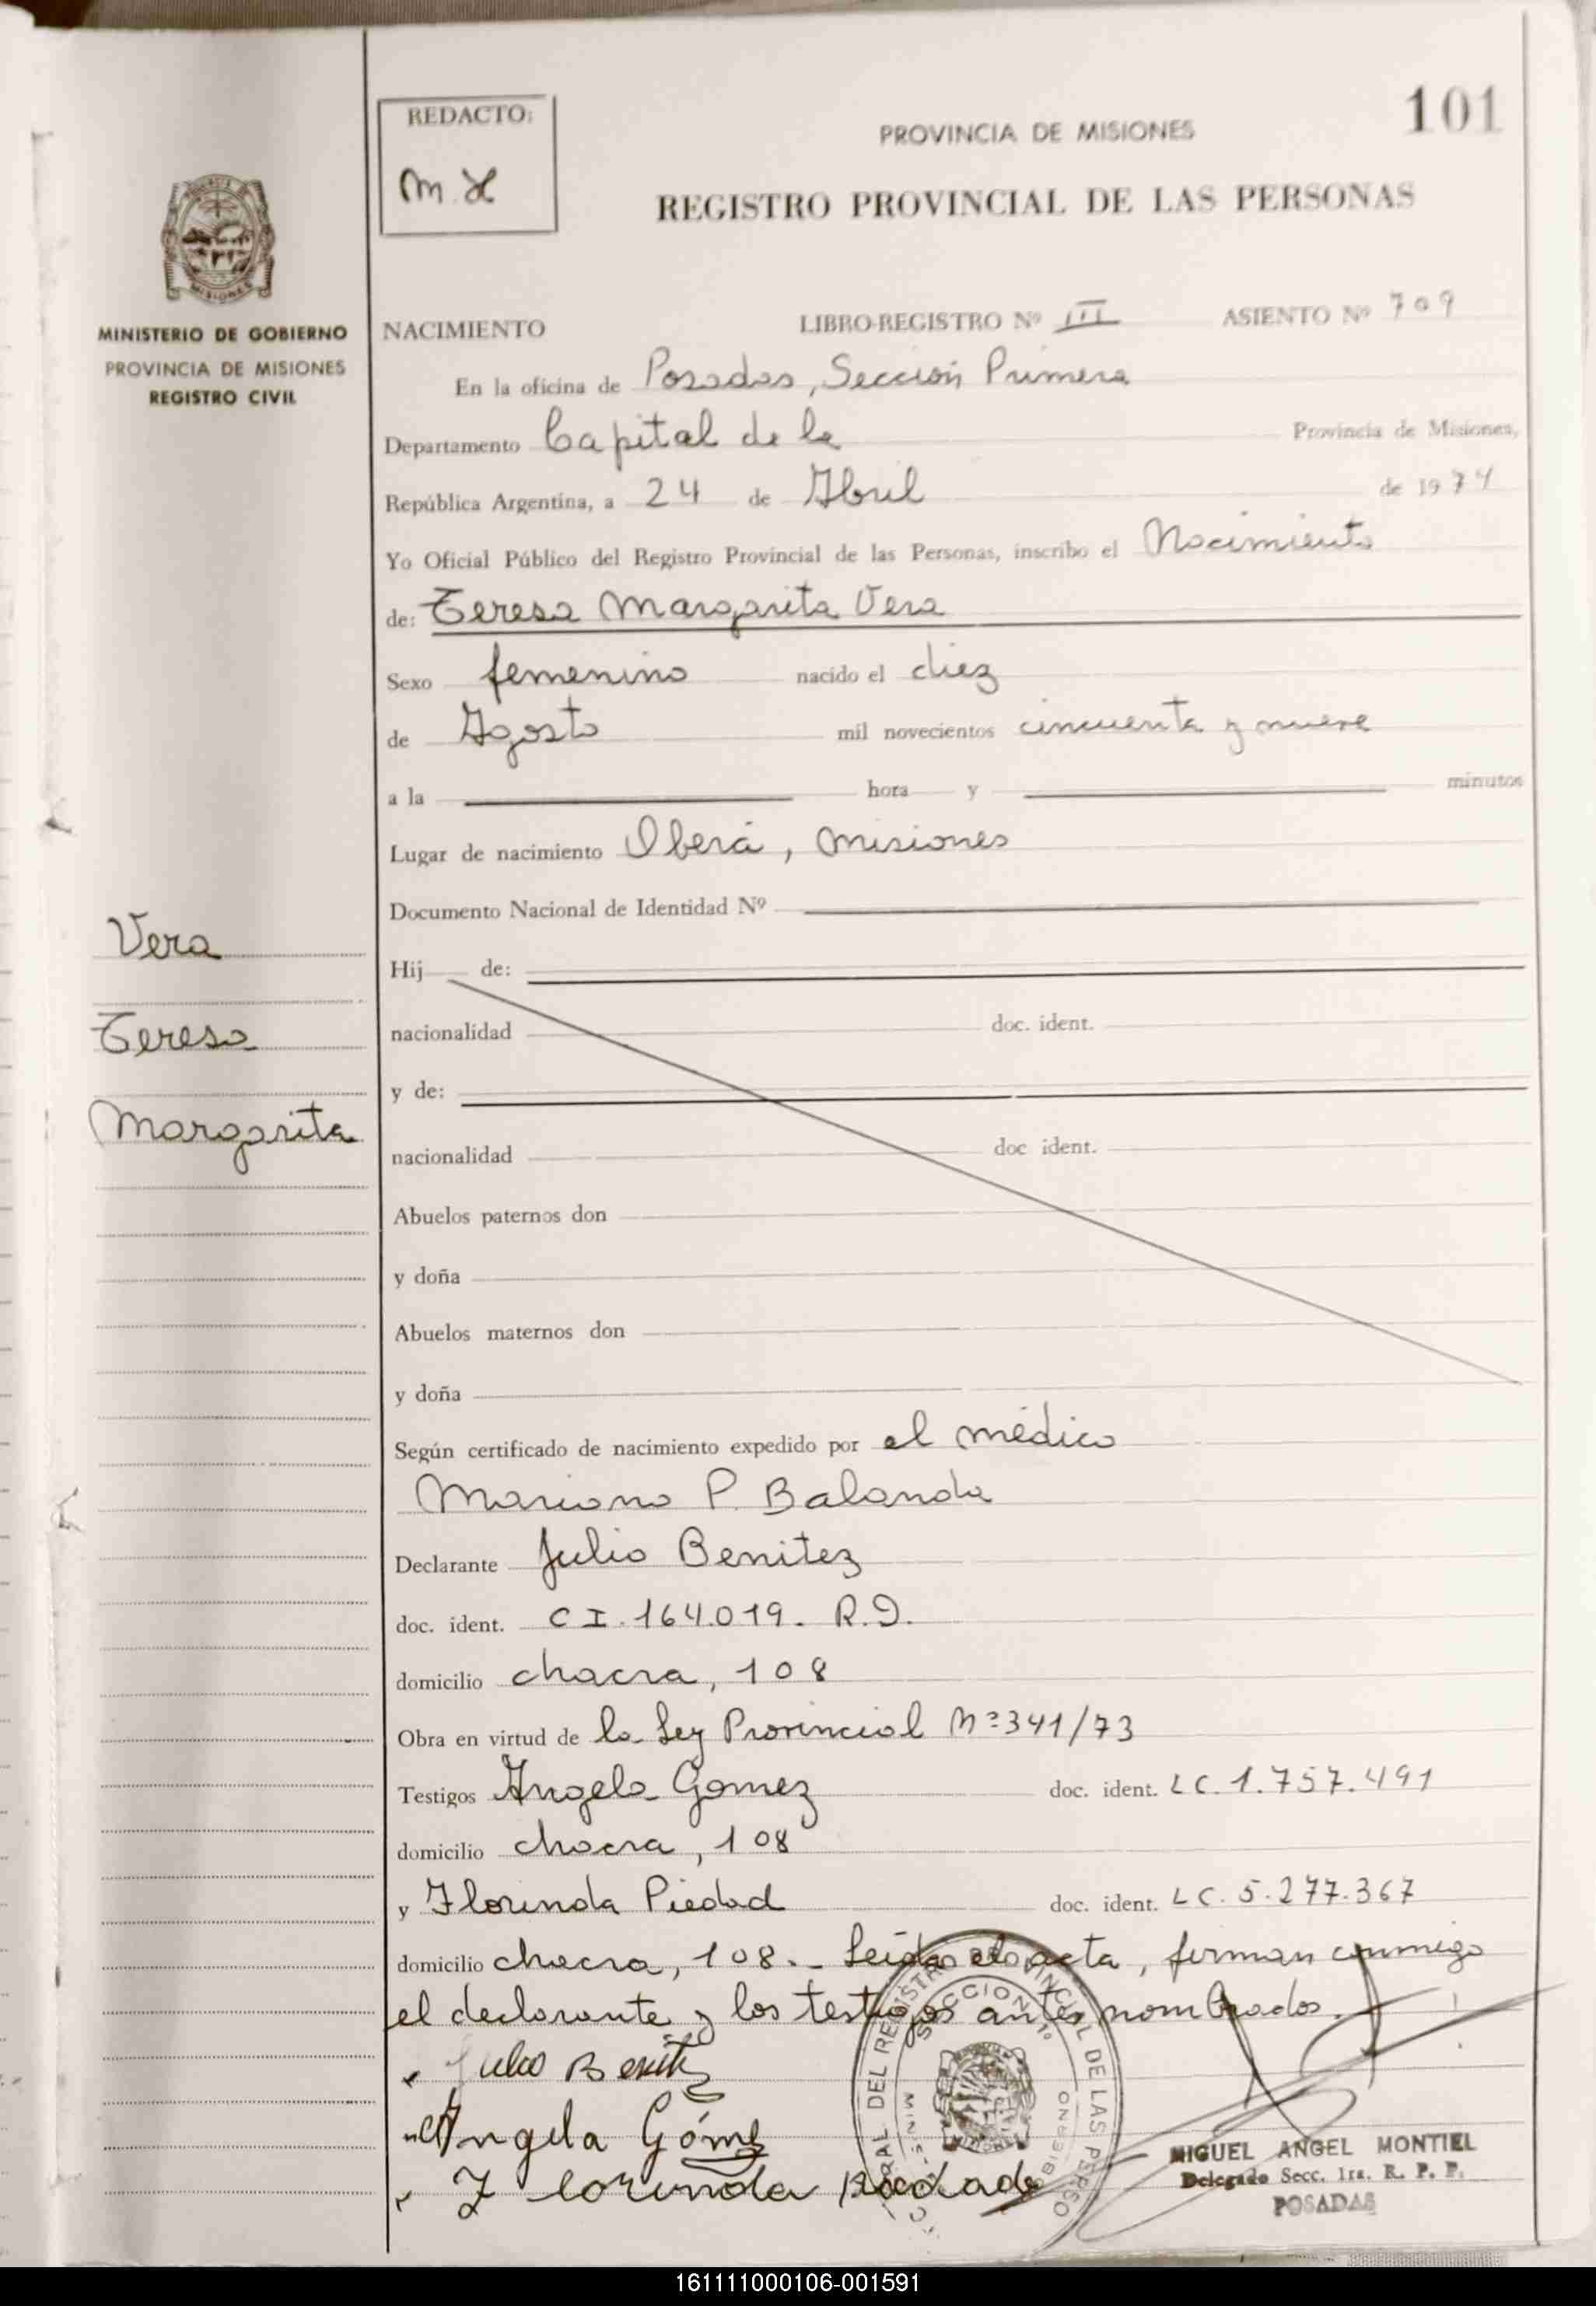 101
REDACTO:
M. X
PROVINCIA DE MISIONES
REGISTRO PROVINCIAL DE LAS PERSONAS
MISIONES
MINISTERIO DE GOBIERNO
PROVINCIA DE MISIONES
REGISTRO CIVIL
NACIMIENTO LIBRO-REGISTRO Nº III ASIENTO Nº 709
En la oficina de Posadas, Sección Primera
Departamento Capital de la Provincia de Misiones,
República Argentina, a 24 de Abril de 1974
Yo Oficial Público del Registro Provincial de las Personas, inscribo el Nacimiento
de: Teresa Margarita Vera
Sexo femenino nacido el diez
de Agosto mil novecientos cincuenta y nueve
a la hora y minutos
Lugar de nacimiento Oberá, Misiones
Documento Nacional de Identidad Nº
Vera
Teresa
Margarita
Hij de:
nacionalidad doc. ident.
y de:
nacionalidad doc ident.
Abuelos paternos don
y doña
Abuelos maternos don
y doña
Según certificado de nacimiento expedido por el médico
Mariano P. Balanda
Declarante Julio Benitez
doc. ident. C I. 164.019. R.D.
domicilio chacra, 108
Obra en virtud de la Ley Provincial Nº 341/73
Testigos Angela Gomez doc. ident. LC. 1.757.491
domicilio chacra, 108
y Florinda Piedad doc. ident. LC. 5.277.367
domicilio chacra, 108.- Leída el acta, firman conmigo
el declarante y los testigos antes nombrados.
Julio Benitz
Angela Góme
Florinda Piedade
MIGUEL ANGEL MONTIEL
Delegado Secc. 1ra. R. P. P.
POSADAS
161111000106-001591